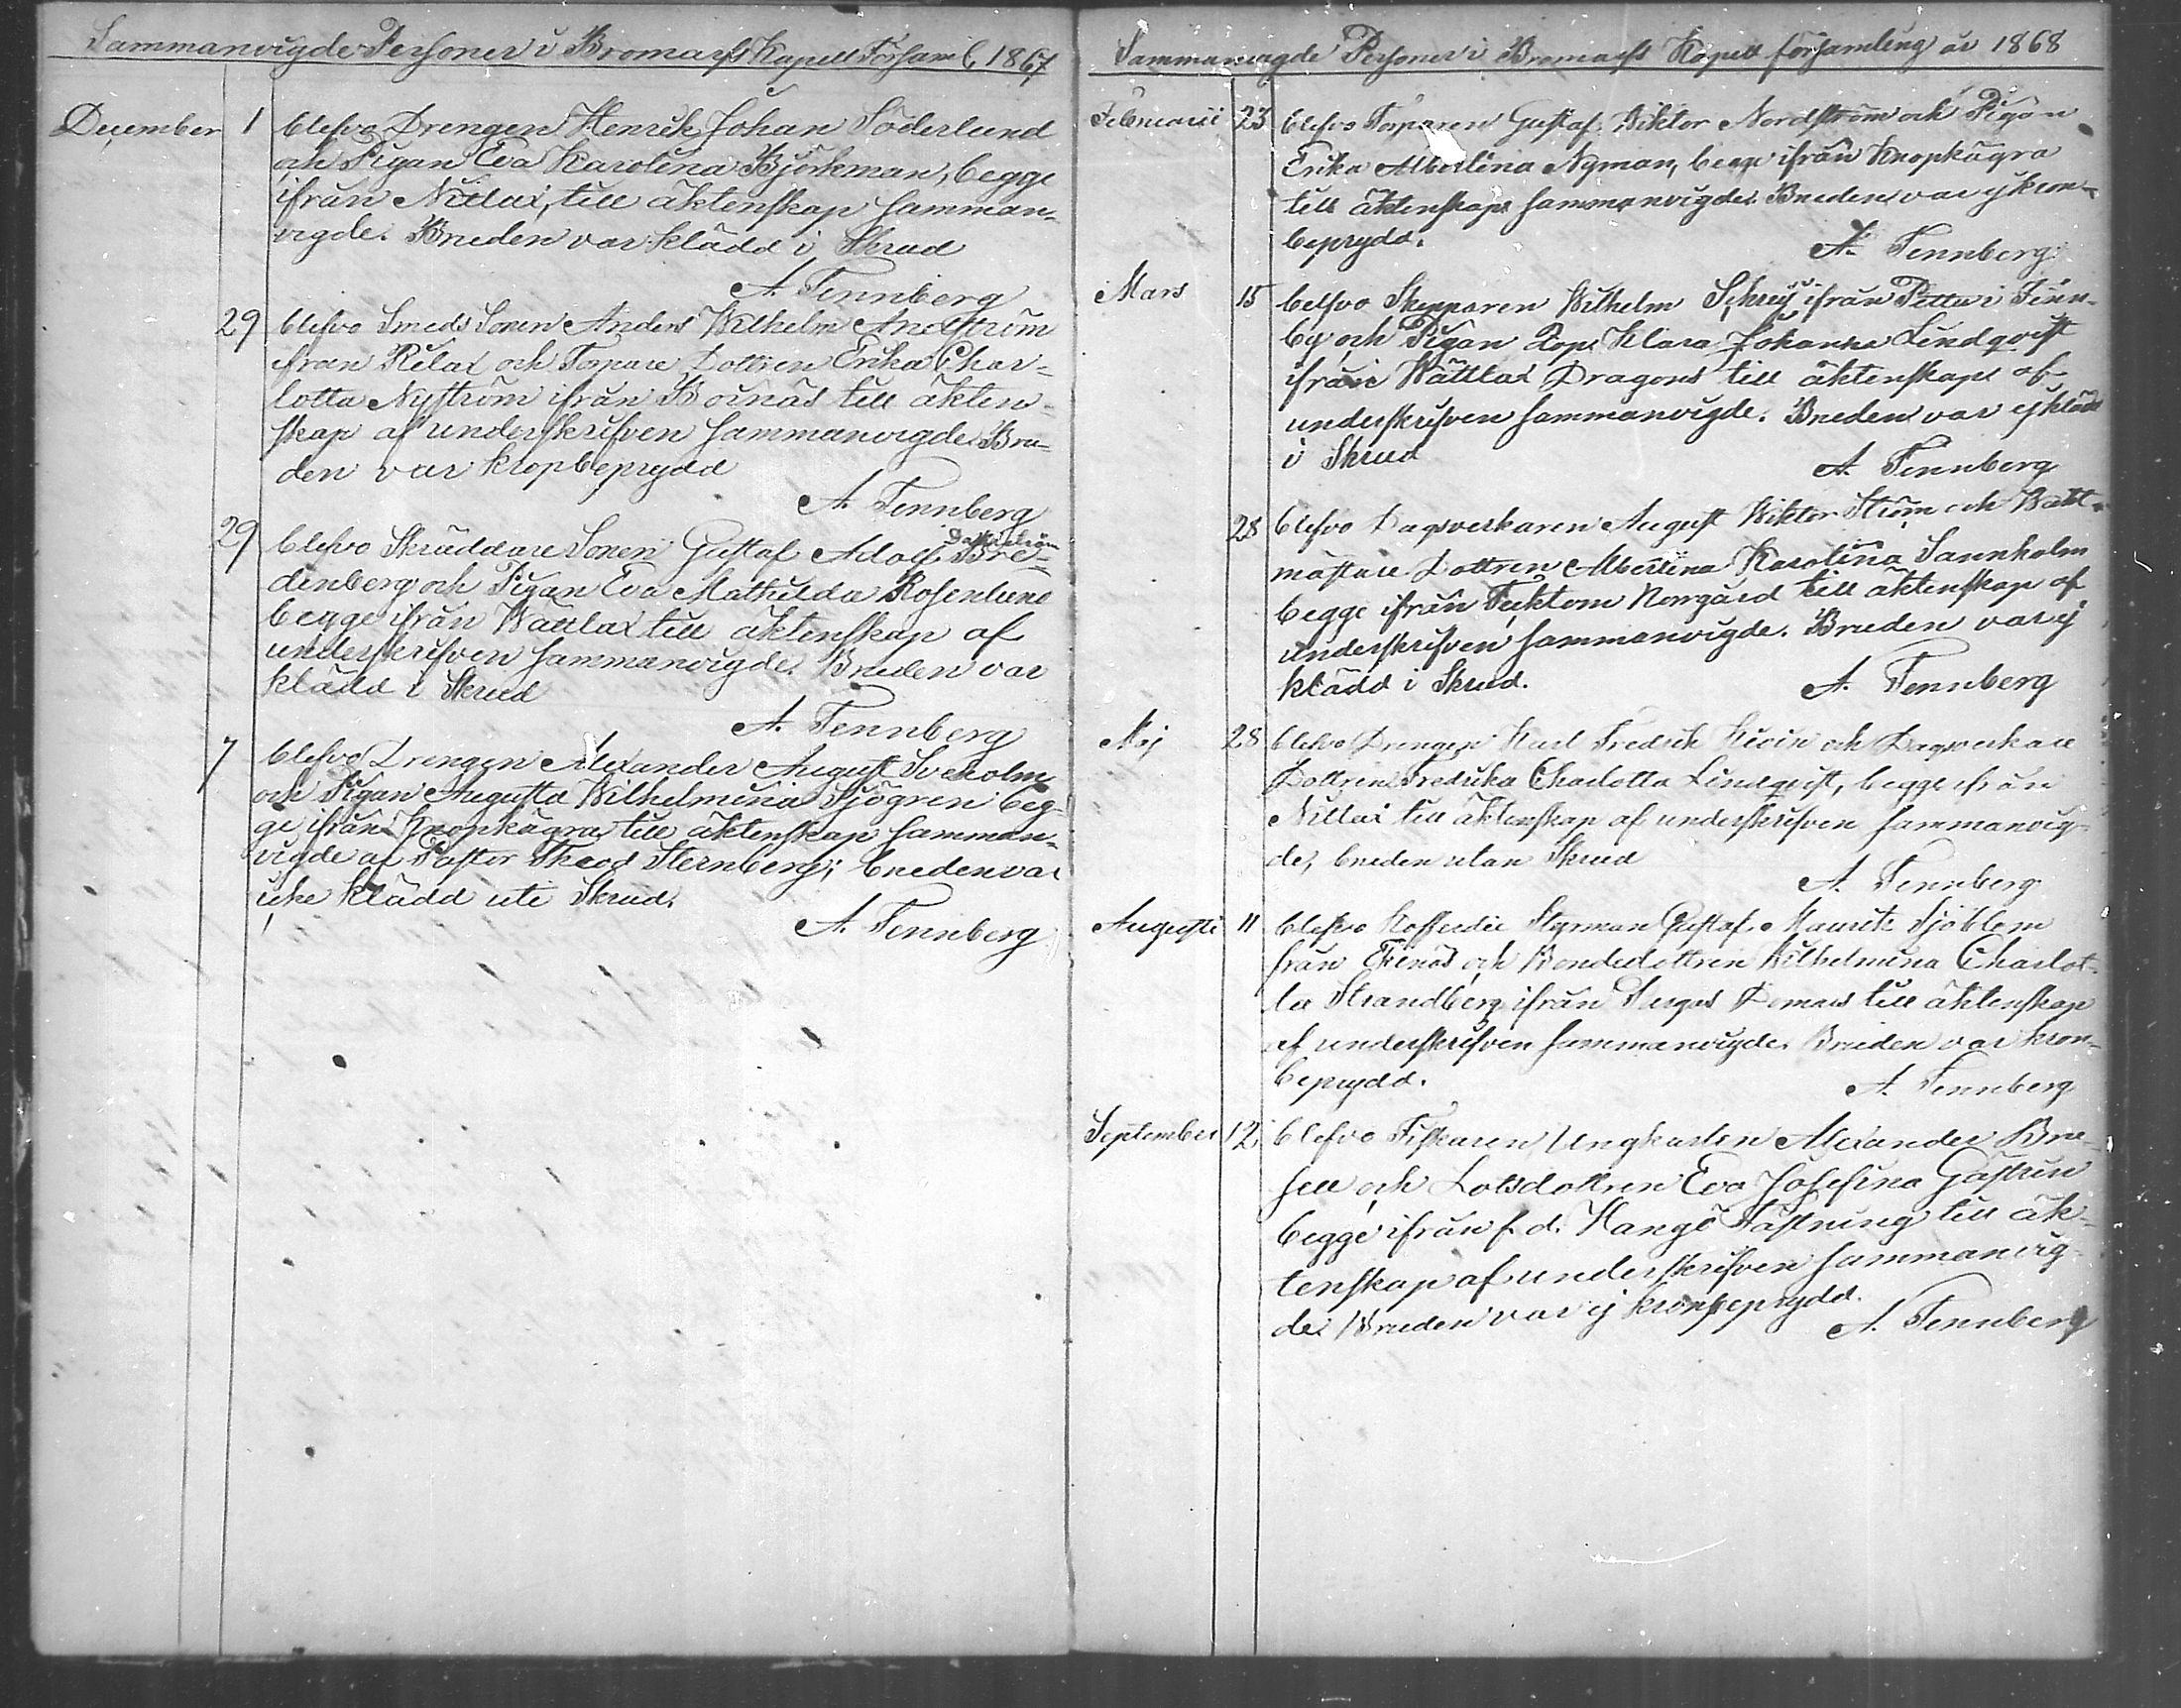 Sammanvigde Personer i Bromarfs Kapell Församl. 1867
December 1 blefvo Drengen Henrik Johan Söderlund
och Pigan Eva Karolina Björkman, begge
ifrån Nitlax, till äktenskap samman-
vigde. Bruden var klädd i Skrud
A. Tennberg
29 blefvo Smeds Sonen Anders Wilhelm
ifrån Rilax och Torpare Dottren Erika Char-
lotta Nyström ifrån Bonäs till äkten-
skap af underskrifven sammanvigde. Bru-
den var kronbeprydd
A. Tennberg
29 blefvo Skräddare Sonen Gustaf Adolf Bre-
denberg och Pigan Eva Mathilda Rosenlund
begge ifrån Wättlax till äktenskap af
underskrifven sammanvigde. Bruden var
klädd i Skrud
A. Tennberg
7 blefvo Drengen Alexander August Sveholm
och Pigan Augusta Wilhelmina Sjögren beg-
ge ifrån Knopkägra till äktenskap samman-
vigde af Pastor Theod Sternberg; bruden var
icke klädd uti Skrud.
A. Tennberg
Sammanvigde Personer i Bromarfs Kapell församling år 1868
Februarii 23 blefvo Torparen Gustaf Wiktor Nordström och Pigan
Erika Albertina Nyman, begge ifrån Knopkägra
till äktenskap sammanvigde. Bruden var ej kron-
beprydd.
A. Tennberg
Mars 15 blefvo Skepparen Wilhelm Schrey ifrån Pettu i Finn-
by och Pigan Klara Johanna Lindqvist
ifrån Wättlax Dragons till äktenskap af
underskrifven sammanvigde. Bruden var ej klädd
i Skrud
A. Tennberg
28 blefvo Dagsverkaren August Wiktor Ström och Wakt-
mästare Dottren Albertina Karolina Sannholm
begge ifrån Tecktom Norrgård till äktenskap af
underskrifven sammanvigde. Bruden var ej
klädd i Skrud.
A. Tennberg
Maj 28 blefvo Drengen Karl Fredrik och Dagsverkare
Dottren Fredrika Charlotta Lindqvist, begge ifrån
Nitlax till äktenskap af underskrifven sammanvig-
de, bruden utan Skrud
A. Tennberg
Augusti 11 blefvo Kofferdie Styrman Gustaf Maurits Sjöblom
från Ekenäs och Bondedottren Wilhelmina Charlot-
ta Strandberg ifrån Domars till äktenskap
af underskrifven sammanvigde. Bruden var kron-
beprydd.
A. Tennberg
September 12 blefvo Fiskaren Ungkarlen Alexander Bru-
sell och Lotsdottren Eva Josefina Gästrin
begge ifrån f. d. Hangö Fästning till äk-
tenskap af underskrifven sammanvig-
de. Bruden var ej kronbeprydd.
A. Tennberg